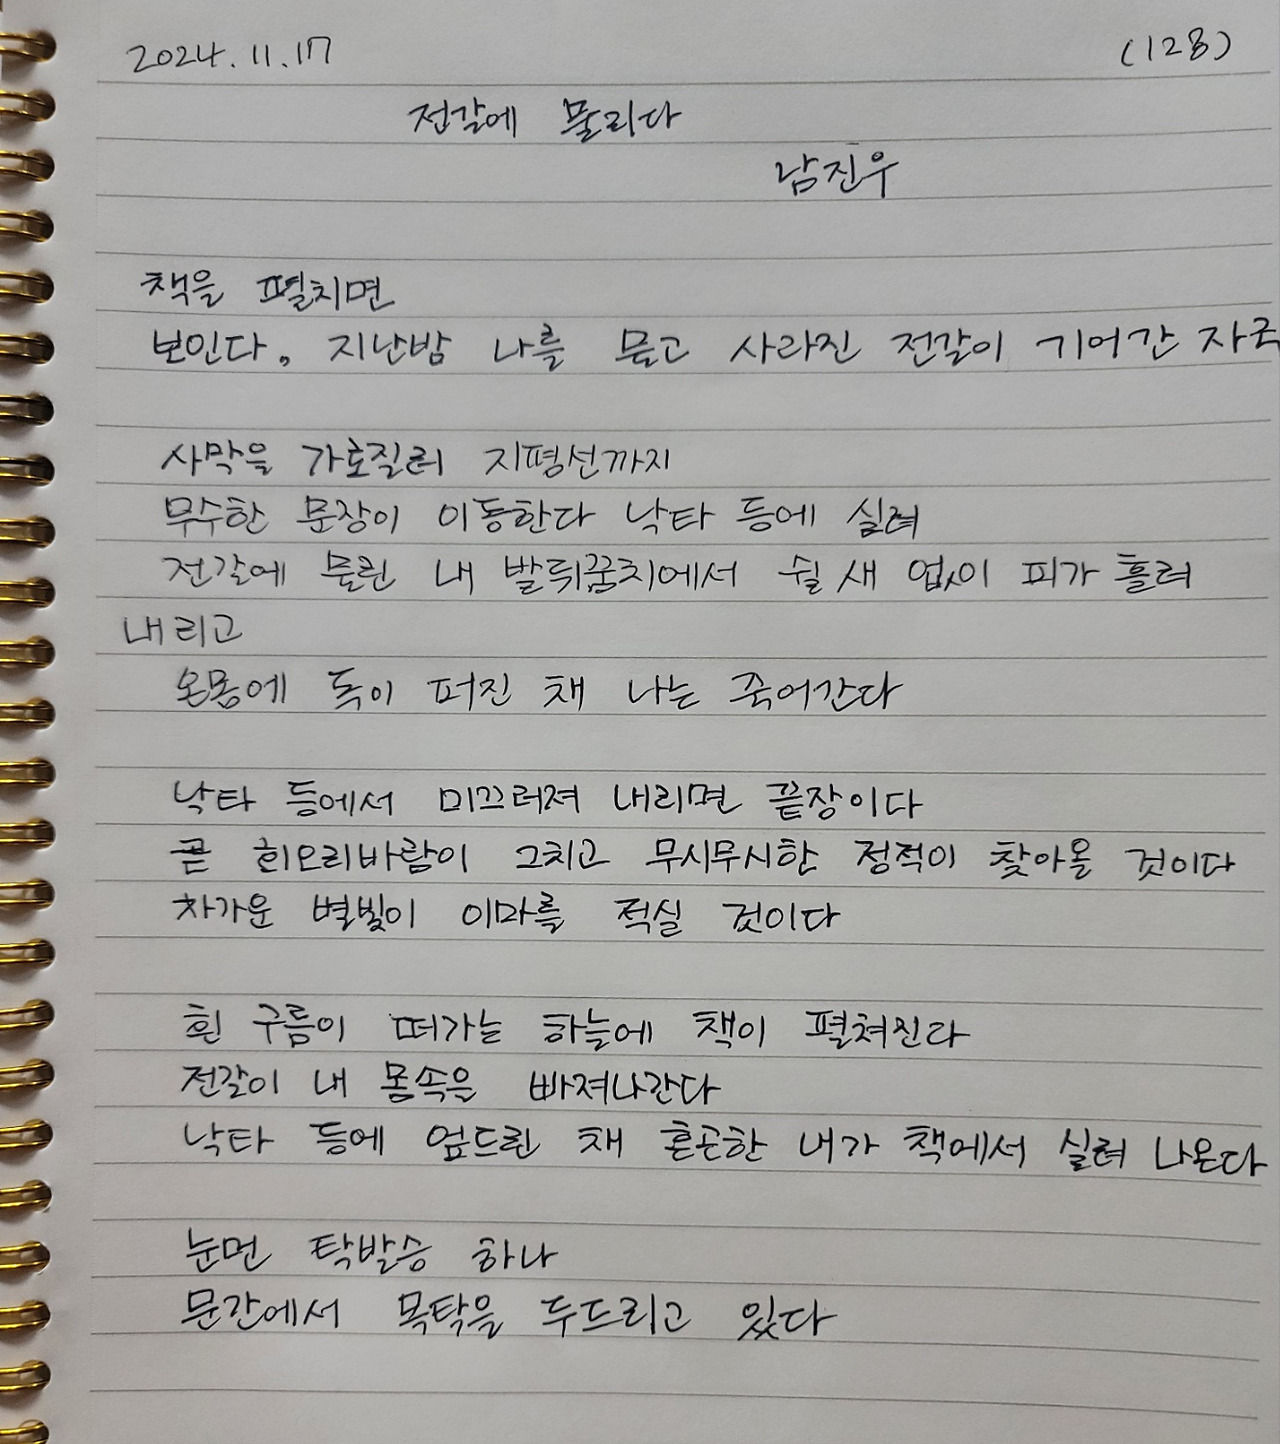 2024.11.17 (128)
전갈에 물리다
남진우
책을 펼치면
보인다. 지난밤 나를 물고 사라진 전갈이 기어간 자국
사막을 가로질러 지평선까지
무수한 문장이 이동한다 낙타 등에 실려
전갈에 물린 내 발뒤꿈치에서 쉴 새 없이 피가 흘러
내리고
온몸에 독이 퍼진 채 나는 죽어간다
낙타 등에서 미끄러져 내리면 끝장이다
곧 회오리바람이 그치고 무시무시한 정적이 찾아올 것이다
차가운 별빛이 이마를 적실 것이다
흰 구름이 떠가는 하늘에 책이 펼쳐진다
전갈이 내 몸속을 빠져나간다
낙타 등에 엎드린 채 혼곤한 내가 책에서 실려 나온다
눈먼 탁발승 하나
문간에서 목탁을 두드리고 있다